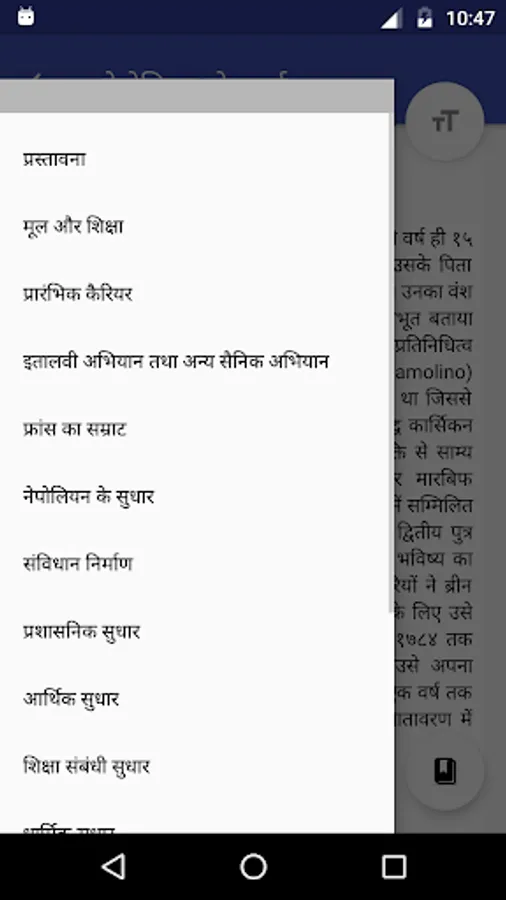 10:47
प्रस्तावना
मूल और शिक्षा
प्रारंभिक कैरियर
इतालवी अभियान तथा अन्य सैनिक अभियान
फ्रांस का सम्राट
नेपोलियन के सुधार
संविधान निर्माण
प्रशासनिक सुधार
आर्थिक सुधार
शिक्षा संबंधी सुधार
धार्मिक सुधार
वर्ष ही १५
उसके पिता
उनका वंश
बताया
प्रतिनिधित्व
amolino)
था जिससे
कार्सिकन
से साम्य
मारबिफ
में सम्मिलित
द्वितीय पुत्र
भविष्य का
ने ब्रीन
के लिए उसे
१७८४ तक
उसे अपना
एक वर्ष तक
में